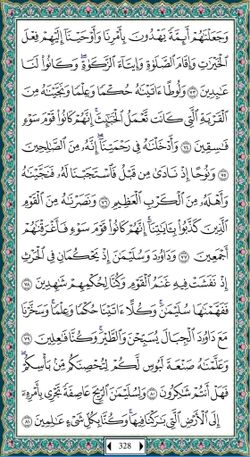 وَجَعَلْنَٰهُمْ أَئِمَّةً يَهْدُونَ بِأَمْرِنَا وَأَوْحَيْنَآ إِلَيْهِمْ فِعْلَ
ٱلْخَيْرَٰتِ وَإِقَامَ ٱلصَّلَوٰةِ وَإِيتَآءَ ٱلزَّكَوٰةِ ۖ وَكَانُوا۟ لَنَا
عَٰبِدِينَ ٧٣ وَلُوطًا ءَاتَيْنَٰهُ حُكْمًا وَعِلْمًا وَنَجَّيْنَٰهُ مِنَ
ٱلْقَرْيَةِ ٱلَّتِى كَانَت تَّعْمَلُ ٱلْخَبَٰٓئِثَ ۗ إِنَّهُمْ كَانُوا۟ قَوْمَ سَوْءٍ
فَٰسِقِينَ ٧٤ وَأَدْخَلْنَٰهُ فِى رَحْمَتِنَآ ۖ إِنَّهُۥ مِنَ ٱلصَّٰلِحِينَ
٧٥ وَنُوحًا إِذْ نَادَىٰ مِن قَبْلُ فَٱسْتَجَبْنَا لَهُۥ فَنَجَّيْنَٰهُ
وَأَهْلَهُۥ مِنَ ٱلْكَرْبِ ٱلْعَظِيمِ ٧٦ وَنَصَرْنَٰهُ مِنَ ٱلْقَوْمِ
ٱلَّذِينَ كَذَّبُوا۟ بِـَٔايَٰتِنَآ ۚ إِنَّهُمْ كَانُوا۟ قَوْمَ سَوْءٍ فَأَغْرَقْنَٰهُمْ
أَجْمَعِينَ ٧٧ وَدَاوُۥدَ وَسُلَيْمَٰنَ إِذْ يَحْكُمَانِ فِى ٱلْحَرْثِ
إِذْ نَفَشَتْ فِيهِ غَنَمُ ٱلْقَوْمِ وَكُنَّا لِحُكْمِهِمْ شَٰهِدِينَ ٧٨
فَفَهَّمْنَٰهَا سُلَيْمَٰنَ ۚ وَكُلًّا ءَاتَيْنَا حُكْمًا وَعِلْمًا ۚ وَسَخَّرْنَا
مَعَ دَاوُۥدَ ٱلْجِبَالَ يُسَبِّحْنَ وَٱلطَّيْرَ ۚ وَكُنَّا فَٰعِلِينَ ٧٩
وَعَلَّمْنَٰهُ صَنْعَةَ لَبُوسٍ لَّكُمْ لِتُحْصِنَكُم مِّنۢ بَأْسِكُمْ ۖ
فَهَلْ أَنتُمْ شَٰكِرُونَ ٨٠ وَلِسُلَيْمَٰنَ ٱلرِّيحَ عَاصِفَةً تَجْرِى بِأَمْرِهِۦٓ
إِلَى ٱلْأَرْضِ ٱلَّتِى بَٰرَكْنَا فِيهَا ۚ وَكُنَّا بِكُلِّ شَىْءٍ عَٰلِمِينَ ٨١
328